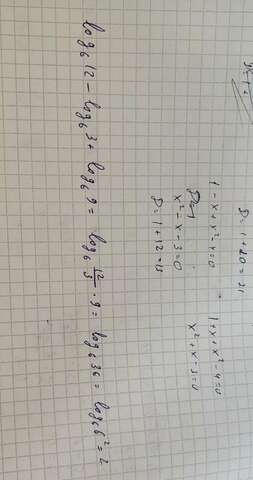 D = 1 + 20 = 21
1 - x + x² - 4 = 0    1 + x + x² - 4 = 0
x² - x - 3 = 0    x² + x - 3 = 0
D = 1 + 12 = 13
log₆ 12 - log₆ 3 + log₆ 9 = log₆ 12/3 · 9 = log₆ 36 = log₆ 6² = 2